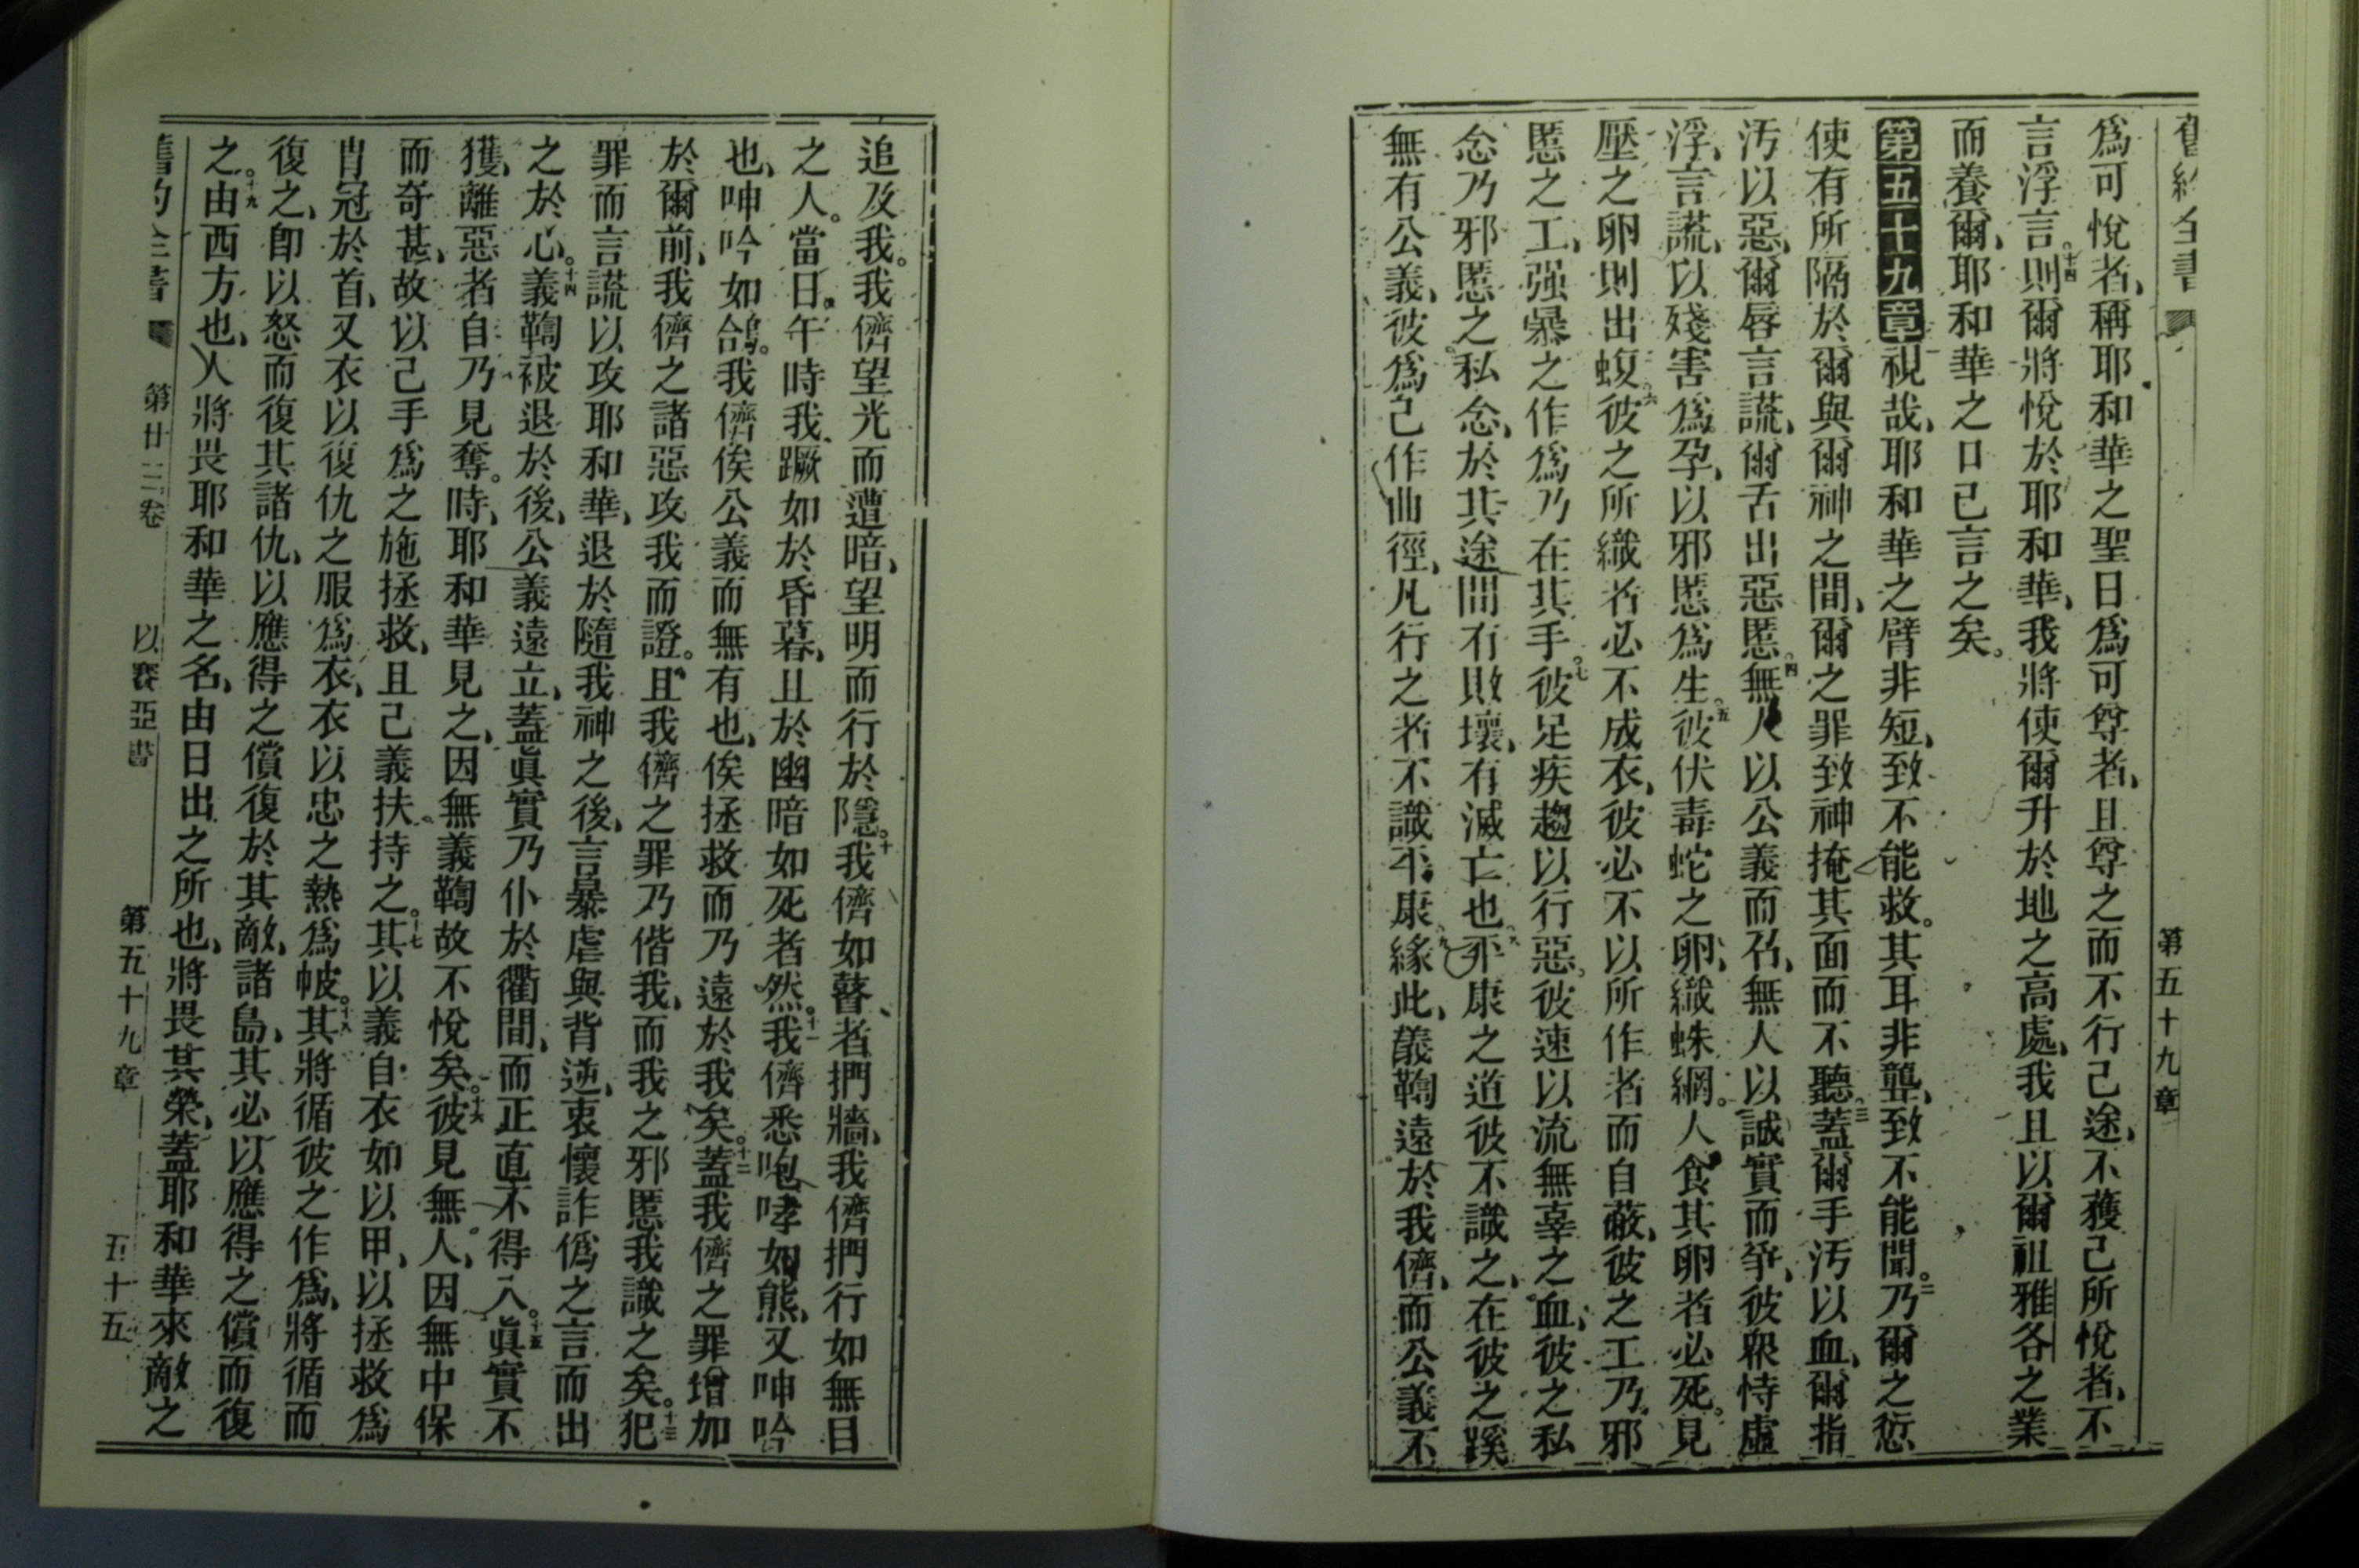 舊約全書
第五十九章
爲可悅者、稱耶和華之聖日爲可尊者、且尊之而不行己途、不獲己所悅者、不
言浮言。十四則爾將悅於耶和華、我將使爾升於地之高處、我且以爾祖雅各之業
而養爾、耶和華之口己言之矣。
第五十九章視哉、耶和華之臂非短、致不能救。其耳非聾、致不能聞。二乃爾之愆
使有所隔於爾與爾神之間、爾之罪致神掩其面而不聽。三蓋爾手污以血、爾指
汚以惡、爾唇言謊、爾舌出惡慝。四無人以公義而召、無人以誠實而爭、彼衆恃虛
浮、言謊、以殘害爲孕、以邪慝爲生。五彼伏毒蛇之卵、織蛛網。人食其卵者必死。見
壓之卵則出蝮。六彼之所織者必不成衣、彼必不以所作者而自蔽、彼之工乃邪
慝之工、强暴之作爲乃在其手。七彼足疾趨以行惡。彼速以流無辜之血、彼之私
念乃邪慝之私念、於其途間有敗壞、有滅亡也。八平康之道彼不識之、在彼之蹊
無有公義、彼爲己作曲徑、凡行之者不識平康。九緣此、義鞫遠於我儕、而公義不
追及我。我儕望光而遭暗、望明而行於隱。十我儕如瞽者捫牆、我儕捫行如無目
之人。當日午時我蹶如於昏暮、且於幽暗如死者然。十一我儕悉咆哮如熊、又呻吟
也、呻吟如鴿。我儕俟公義而無有也、俟拯救而乃遠於我矣。十二蓋我儕之罪增加
於爾前、我儕之諸惡攻我而證。且我儕之罪乃偕我、而我之邪慝我識之矣。十三犯
罪而言謊以攻耶和華、退於隨我神之後、言暴虐與背逆、衷懷詐僞之言而出
之於心。十四義鞫被退於後、公義遠立、蓋眞實乃仆於衢間、而正直不得入。十五眞實不
獲、離惡者自乃見奪。時、耶和華見之、因無義鞫故不悅矣。十六彼見無人、因無中保
而奇甚、故以己手爲之施拯救、且己義扶持之。十七其以義自衣如以甲、以拯救爲
胄冠於首、又衣以復仇之服爲衣、衣以忠之熱爲帔。十八其將循彼之作爲、將循而
復之、卽以怒而復其諸仇、以應得之償復於其敵、諸島、其必以應得之償而復
之。十九由西方也、人將畏耶和華之名、由日出之所也、將畏其榮、蓋耶和華來敵之
舊約全書
第廿三卷
以賽亞書
第五十九章
五十五